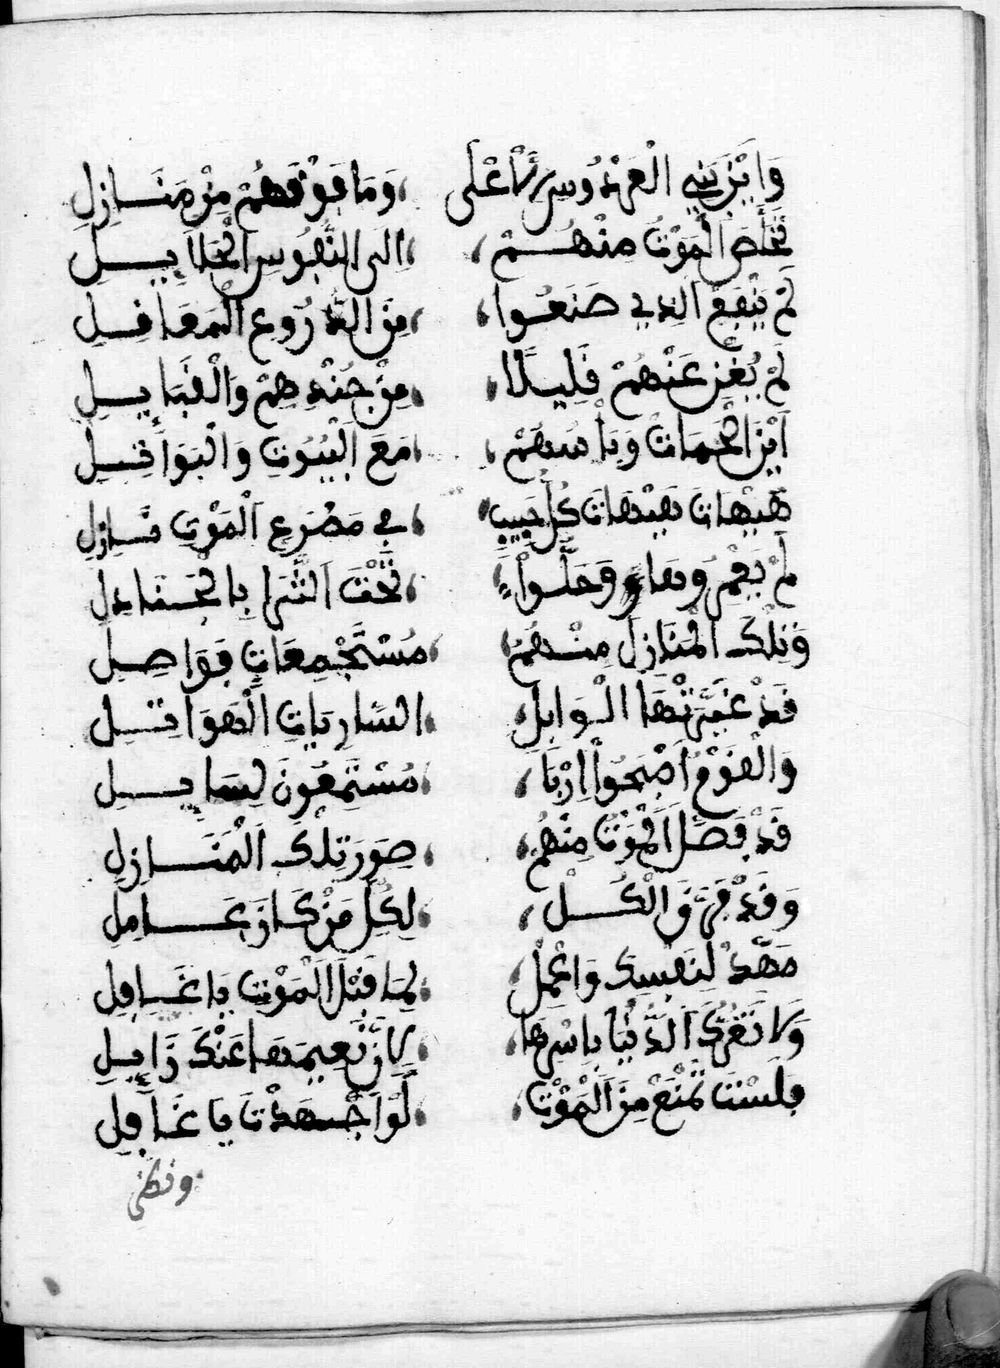 وَابْنِ بَنِي الْفِرْدَوْسِ الْأَعْلَى ، وَمَا فَوْقَهُمْ مِنْ مَنَازِلِ
تَخَلَّصَ الْمَوْتُ مِنْهُمْ ، الى النُّفُوسِ الْجَلَايِلِ
لَمْ يَنْفَعْ الذي صَنَعُوا ، مِنَ الدُّرُوعِ الْمَعَاقِلِ
لَمْ يُغْنِ عَنْهُمْ قَلِيلًا ، مِنْ جُنْدِهِمْ وَالْقَبَايِلِ
أَيْنَ الْحُمَاتُ وَبَأْسُهُمْ ، مَعَ الْبُيُوتِ وَالْبَوَاتِلِ
هَيْهَاتَ هَيْهَاتَ كُلُّ حَبِيبٍ ، فِي مَصْرَعِ الْمَوْتِ نَازِلِ
لَمْ يَعْمُرُوهَا وَحَلُّوا ، تَحْتَ الثَّرَا بِالْجَنَادِلِ
وَتِلْكَ الْمَنَازِلُ مِنْهُمْ ، مُسْتَجْمِعَاتٍ فَوَاصِلِ
قَدْ غَيَّرَتْهَا الْوَابِلُ ، السَّارِيَاتِ الْهَوَاتِلِ
وَالْقَوْمُ أَصْبَحُوا إِرْبًا ، مُسْتَمِعُونَ لِسَايِلِ
قَدْ فَصَلَ الْمَوْتُ مِنْهُمْ ، صُوَرَ تِلْكَ الْمَنَازِلِ
وَقَدْ فَرَّقَ الْكُلَّ ، لِكُلِّ مَنْ كَانَ عَامِلِ
مَهِّدْ لِنَفْسِكَ وَاعْمَلْ ، لِمَا قَبْلَ الْمَوْتِ يَا غَافِلِ
وَلَا تَغُرَّكَ الدُّنْيَا بِأَسْرِهَا ، لِأَنَّ نَعِيمَهَا عَنْكَ زَايِلِ
فَلَسْتَ تَمْنَعْ مِنَ الْمَوْتِ ، لَوْ اجْتَهَدْتَ يا غَافِلِ